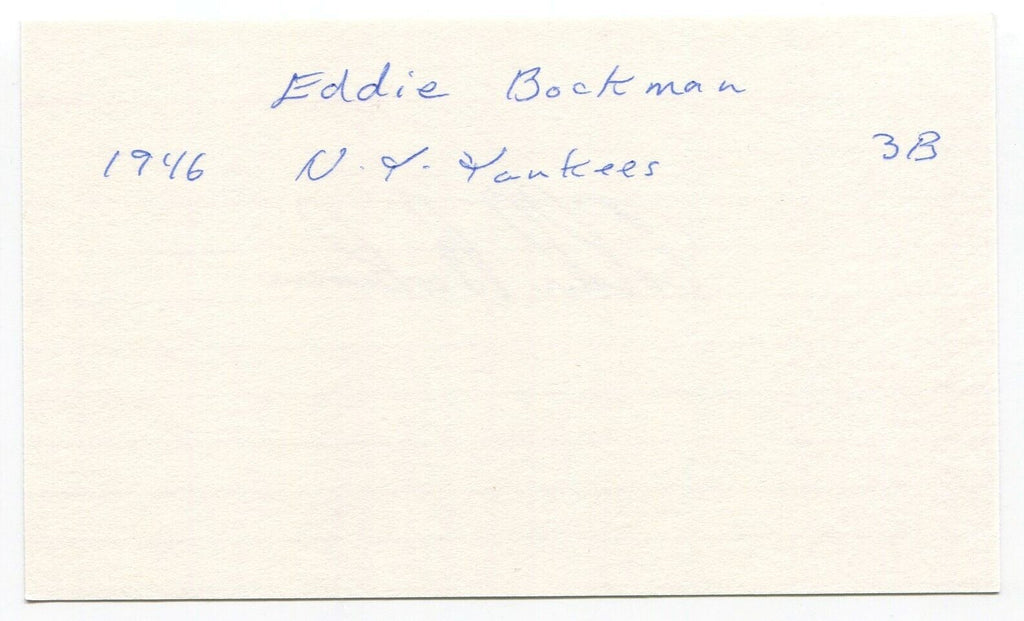 Eddie Bockman
1946 N.Y. Yankees 3B